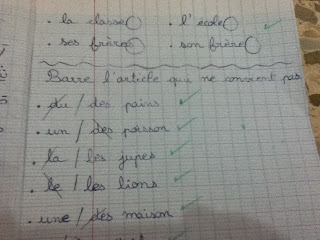 . la classe . l'école
. ses frères . son frère
Barre l'article qui ne convient pas
. du / des pains
. un / des poisson
. la / les jupes
. le / les lions
. une / des maison